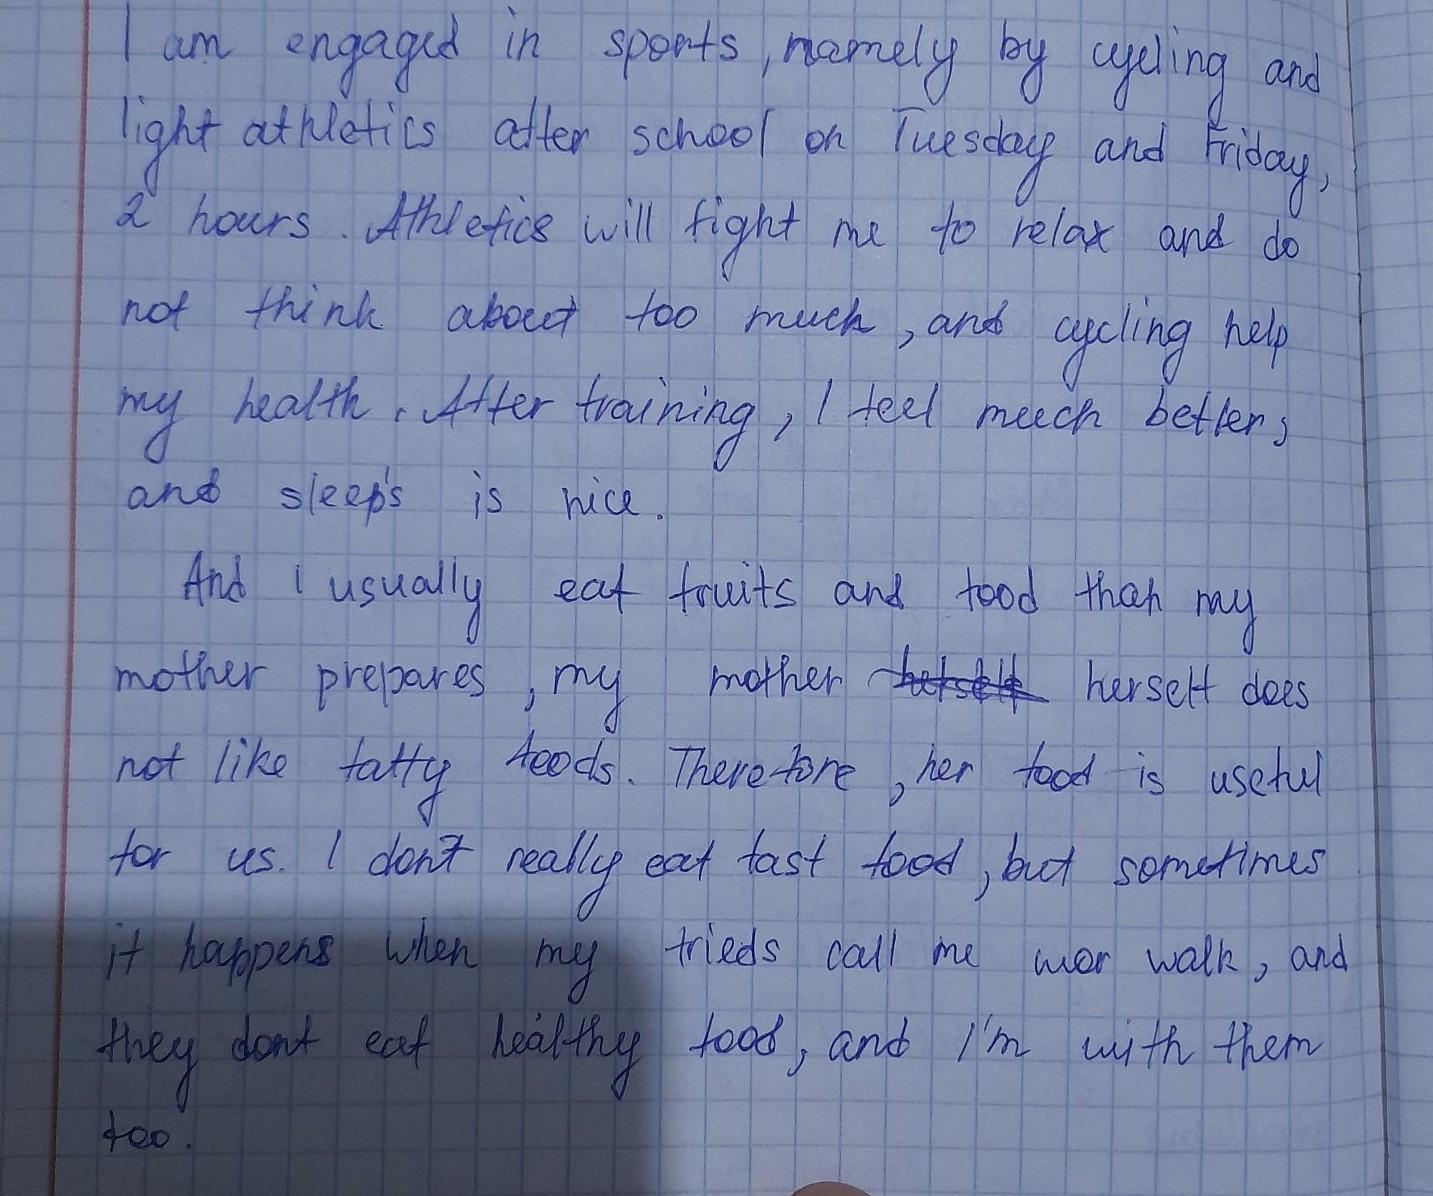 I am engaged in sports, namely by cycling and
light athletics after school on Tuesday and Friday,
2 hours. Athletics will fight me to relax and do
not think about too much, and cycling help
my health. After training, I feel much better,
and sleep's is nice.
And I usually eat fruits and food than my
mother prepares, my mother herself herself does
not like fatty foods. Therefore, her food is useful
for us. I don't really eat fast food, but sometimes
it happens when my frieds call me wor walk, and
they dont eat healthy food, and I'm with them
too.